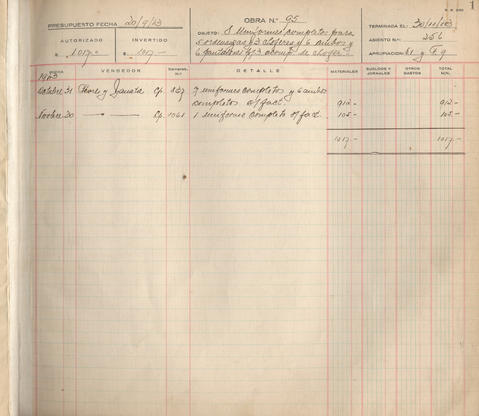 PRESUPUESTO FECHA 20/9/23
AUTORIZADO
INVERTIDO
$ 1017.-
$ 1017.-
OBRA N.° 95
OBJETO: 8 uniformes completos para
5 ordenanzas y 3 choferes y 6 ambos y
6 pantalones p/ 3 acomp. de chofer
TERMINADA EL: 30/11/23
ASIENTO N.° 256
APROPIACION:
1
FECHA
VENDEDOR
Comprob. N.°
DETALLE
MATERIALES
SUELDOS Y JORNALES
OTROS GASTOS
TOTAL M/N.
1923
Octubre 31
7 uniformes completos y 6 ambos
completos s/fact. 912.- 912.-
Novbre 20 1 uniforme completo s/fact. 105.- 105.-
1017.- 1017.-